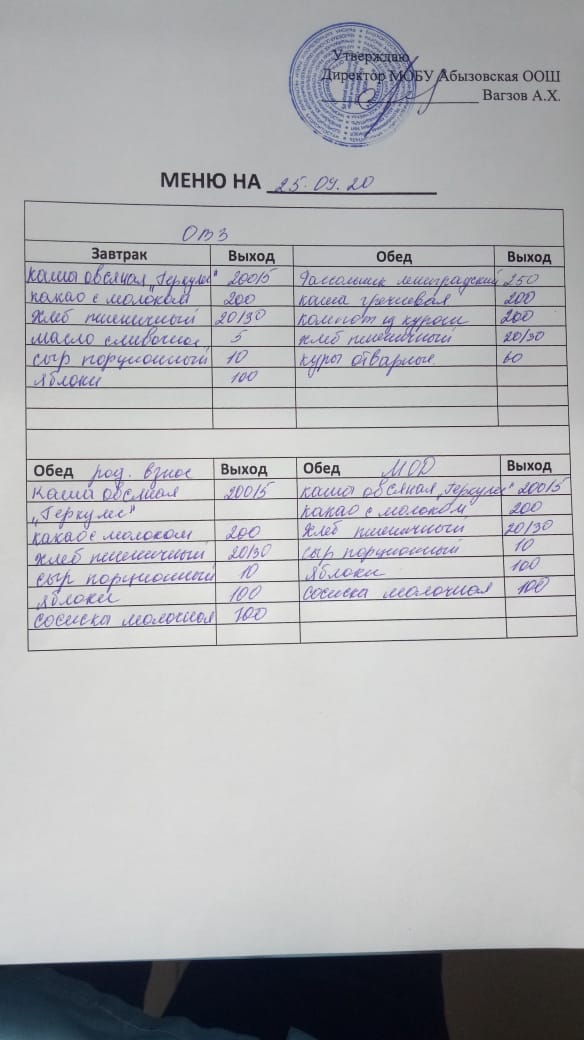 Утверждаю
Директор МОБУ Абызовская ООШ
Вагзов А.Х.
МЕНЮ НА 25.09.20
ОВЗ
Завтрак Выход Обед Выход
каша овсяная „Геркулес" 200/5 Рассольник ленинградский 250
какао с молоком 200 каша гречневая 200
хлеб пшеничный 20/30 компот из кураги 200
масло сливочное 5 хлеб пшеничный 20/30
сыр порционный 10 куры отварные 60
яблоки 100
Обед род. взнос Выход Обед МОД Выход
каша овсяная 200/5 каша овсяная „Геркулес" 200/5
„Геркулес" какао с молоком 200
какао с молоком 200 хлеб пшеничный 20/30
хлеб пшеничный 20/30 сыр порционный 10
сыр порционный 10 яблоки 100
яблоки 100 сосиска молочная 100
сосиска молочная 100